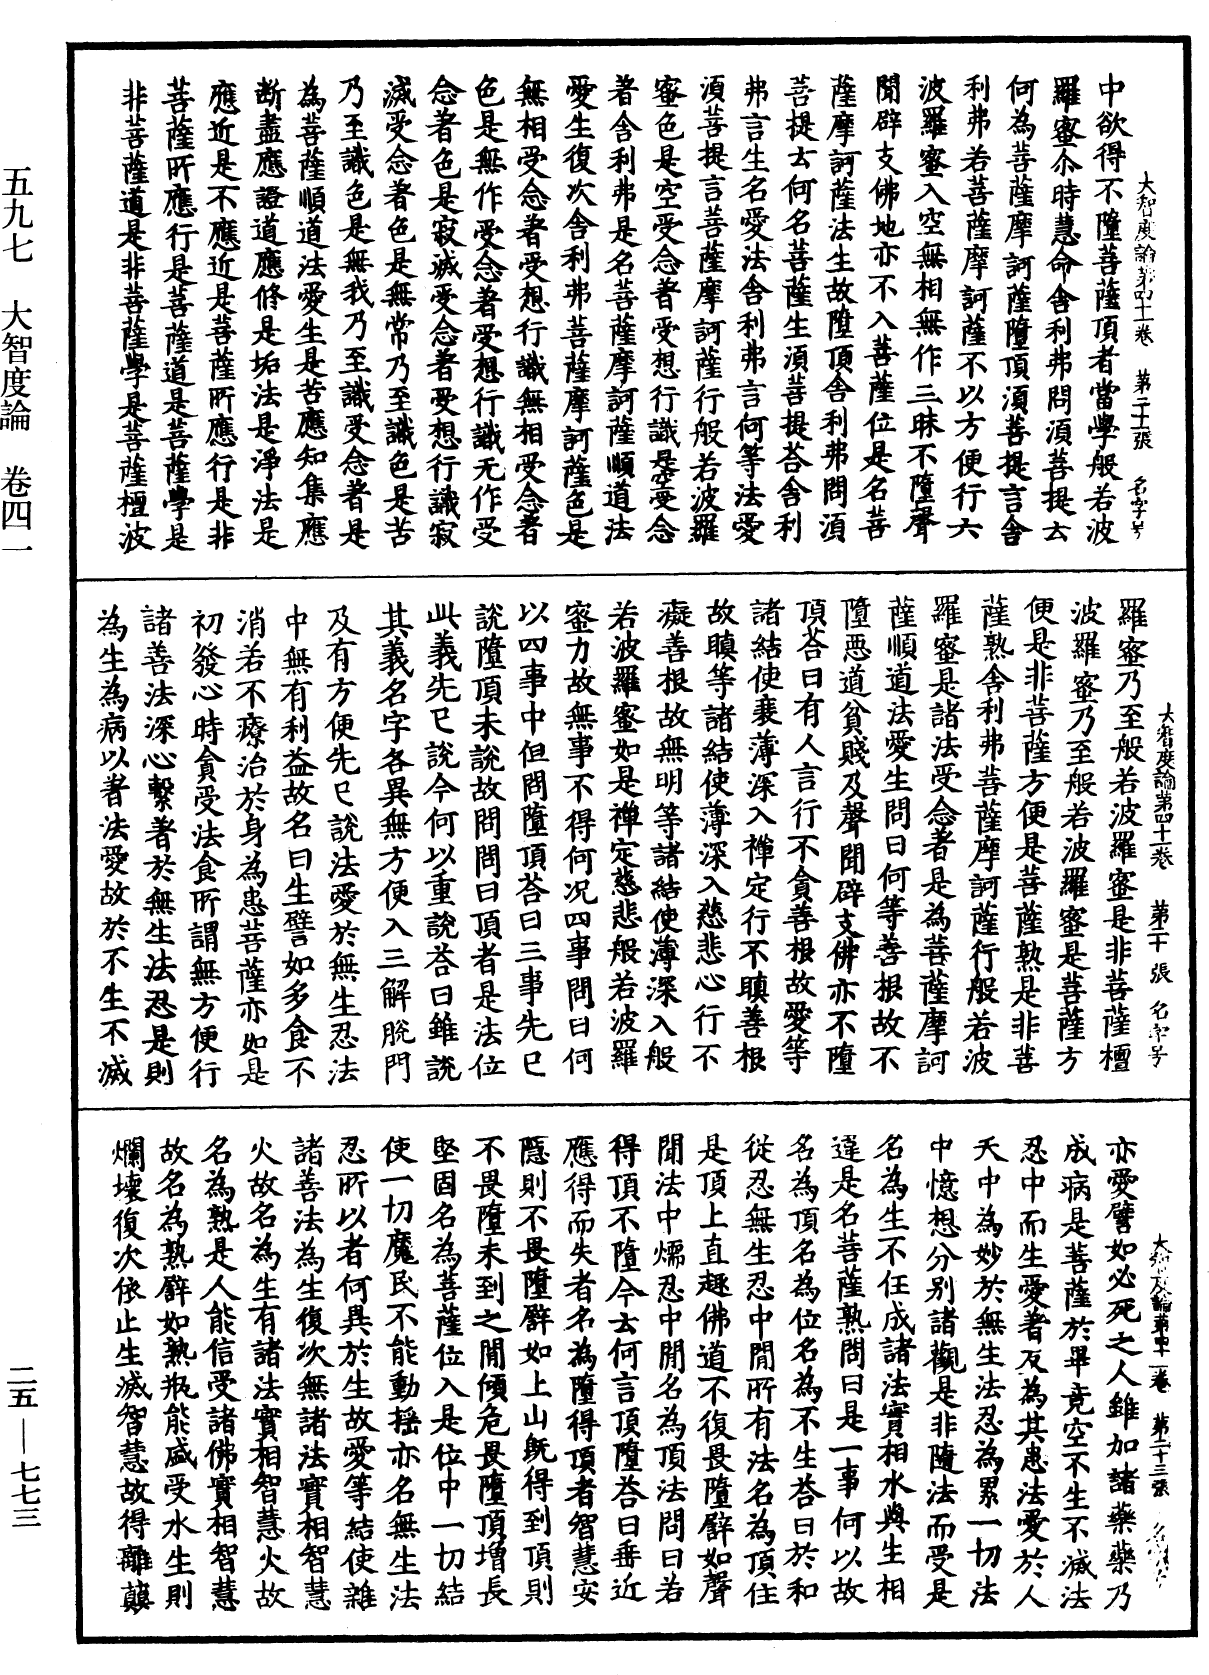 大智度論第四十一卷　第二十一張　名字号
中欲得不墮菩薩頂者當學般若波
羅蜜尒時慧命舍利弗問湏菩提云
何為菩薩摩訶薩墮頂湏菩提言舍
利弗若菩薩摩訶薩不以方便行六
波羅蜜入空無相無作三昧不墮聲
聞辟支佛地亦不入菩薩位是名菩
薩摩訶薩法生故墮頂舍利弗問湏
菩提云何名菩薩生湏菩提荅舍利
弗言生名愛法舍利弗言何等法愛
湏菩提言菩薩摩訶薩行般若波羅
蜜色是空受念著受想行識是空受念
著舍利弗是名菩薩摩訶薩順道法
愛生復次舍利弗菩薩摩訶薩色是
無相受念著受想行識無相受念著
色是無作受念著受想行識无作受
念著色是寂滅受念著受想行識寂
滅受念著色是無常乃至識色是苦
乃至識色是無我乃至識受念著是
為菩薩順道法愛生是苦應知集應
断盡應證道應修是垢法是淨法是
應近是不應近是菩薩所應行是非
菩薩所應行是菩薩道是菩薩學是
非菩薩道是非菩薩學是菩薩檀波
大智度論第四十一卷　第二十　張　名字号
羅蜜乃至般若波羅蜜是非菩薩檀
波羅蜜乃至般若波羅蜜是菩薩方
便是非菩薩方便是菩薩熟是非菩
薩熟舍利弗菩薩摩訶薩行般若波
羅蜜是諸法受念著是為菩薩摩訶
薩順道法愛生問曰何等善根故不
墮惡道貧賤及聲聞辟支佛亦不墮
頂荅曰有人言行不貪善根故愛等
諸結使衰薄深入禪定行不瞋善根
故瞋等諸結使薄深入慈悲心行不
癡善根故無明等諸結使薄深入般
若波羅蜜如是禪定慈悲般若波羅
蜜力故無事不得何況四事問曰何
以四事中但問墮頂荅曰三事先已
說墮頂未說故問問曰頂者是法位
此義先已說今何以重說荅曰雖說
其義名字各異無方便入三解脫門
及有方便先已說法愛於無生忍法
中無有利益故名曰生譬如多食不
消若不療治於身為患菩薩亦如是
初發心時貪受法食所謂無方便行
諸善法深心繫著於無生法忍是則
為生為病以著法愛故於不生不滅
大智度論第四十一卷　第二十三張
亦愛譬如必死之人雖加諸藥藥乃
成病是菩薩於畢竟空不生不滅法
忍中而生愛著反為其患法愛於人
天中為妙於無生法忍為累一切法
中憶想分别諸觀是非隨法而受是
名為生不任成諸法實相水與生相
違是名菩薩熟問曰是一事何以故
名為頂名為位名為不生荅曰於和
從忍無生忍中間所有法名為頂住
是頂上直趣佛道不復畏墮譬如聲
聞法中煗忍中閒名為頂法問曰若
得頂不墮今云何言頂墮荅曰垂近
應得而失者名為墮得頂者智慧安
隱則不畏墮譬如上山旣得到頂則
不畏墮未到之閒傾危畏墮頂增長
堅固名為菩薩位入是位中一切結
使一切魔民不能動揺亦名無生法
忍所以者何異於生故愛等結使雜
諸善法為生復次無諸法實相智慧
火故名為生有諸法實相智慧火故
名為熟是人能信受諸佛實相智慧
故名為熟譬如熟瓶能盛受水生則
爛壞復次依止生滅智慧故得離顛
五九七　大智度論　卷四一
二五—七七三